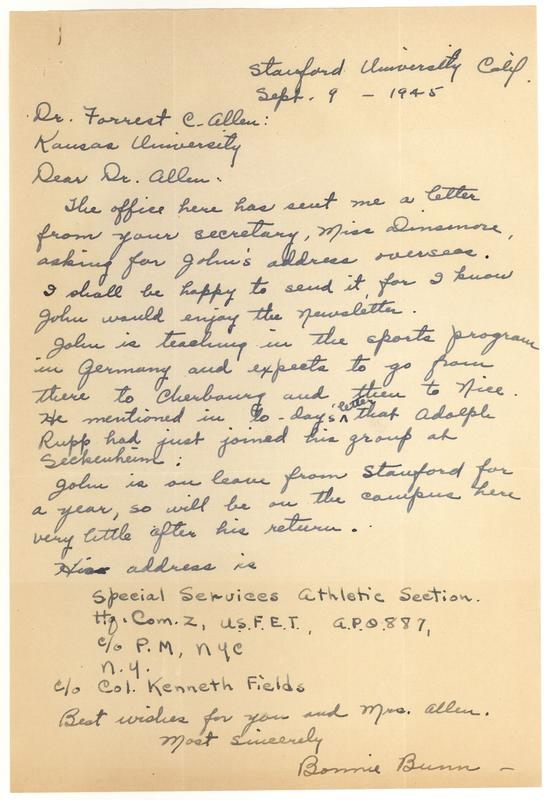 Stanford University Calif.
Sept. 9 - 1945
Dr. Forrest C. Allen:
Kansas University
Dear Dr. Allen:
The office here has sent me a letter
from your secretary, Miss Dinsmore,
asking for John's address overseas.
I shall be happy to send it, for I know
John would enjoy the Newsletter.
John is teaching in the sports program
in Germany and expects to go from
there to Cherbourg and then to Nice.
He mentioned in to-day's letter that Adolph
Rupp had just joined his group at
Seckenheim;
John is on leave from Stanford for
a year, so will be on the campus here
very little after his return.
His address is
Special Services Athletic Section.
Hq. Com. Z, U.S.F.E.T., A.P.O 887,
c/o P.M, NYC
N.Y.
c/o Col. Kenneth Fields
Best wishes for you and Mrs. Allen.
Most sincerely
Bonnie Bunn -